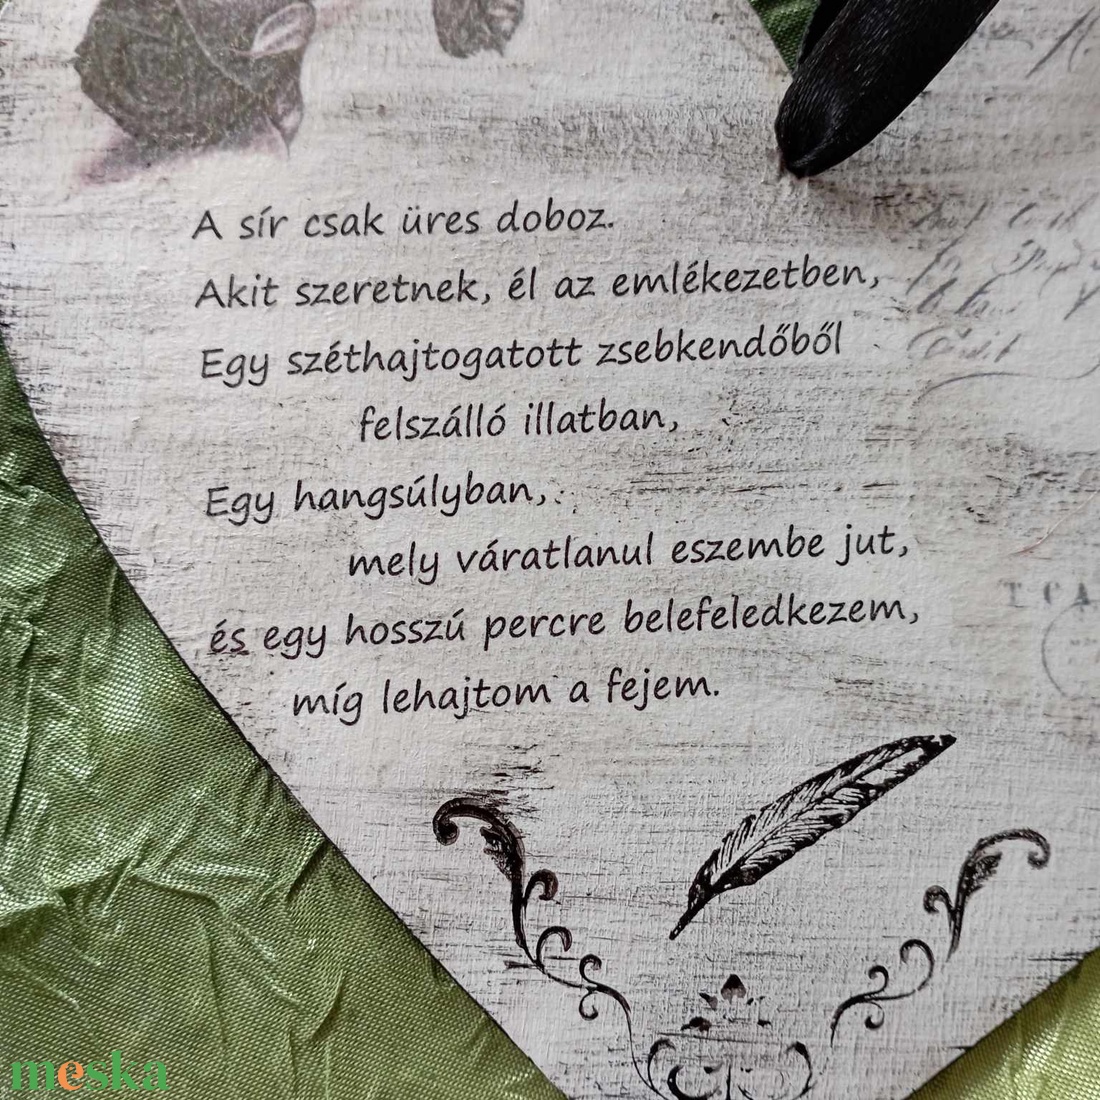 A sír csak üres doboz.
Akit szeretnek, él az emlékezetben,
Egy széthajtogatott zsebkendőből
felszálló illatban,
Egy hangsúlyban,
mely váratlanul eszembe jut,
és egy hosszú percre belefeledkezem,
míg lehajtom a fejem.
meska